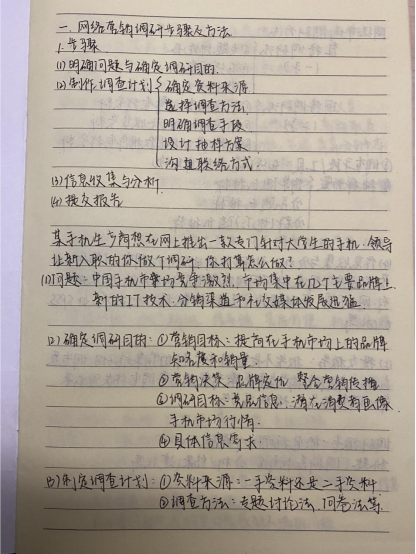 一、网络营销调研步骤及方法
1.步骤
(1)明确问题与确定调研目的.
(2)制作调查计划 确定资料来源
选择调查方法
明确调查手段
设计抽样方案
沟通联络方式.
(3)信息收集与分析.
(4)提交报告
某手机生产商想在网上推出一款专门针对大学生的手机.领导
让新入职的你做个调研.你打算怎么做?
(1)问题:中国手机市场竞争激烈.市场集中在几个主要品牌上.
新的IT技术.分销渠道和社交媒体发展迅猛
(2)确定调研目的:①营销目标:提高在手机市场上的品牌
知名度和销量
②营销决策:品牌定位 整合营销传播
③调研目标:竞品信息.潜在消费者画像
手机市场行情.
④具体信息需求
(3)制定调查计划:①资料来源:一手资料还是二手资料
②调查方法:专题讨论法.问卷法等.